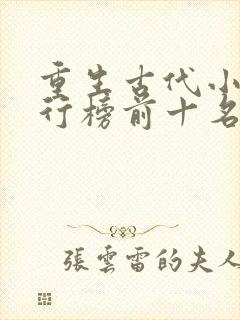 重生古代小
行榜前十名
張雲雷的夫人